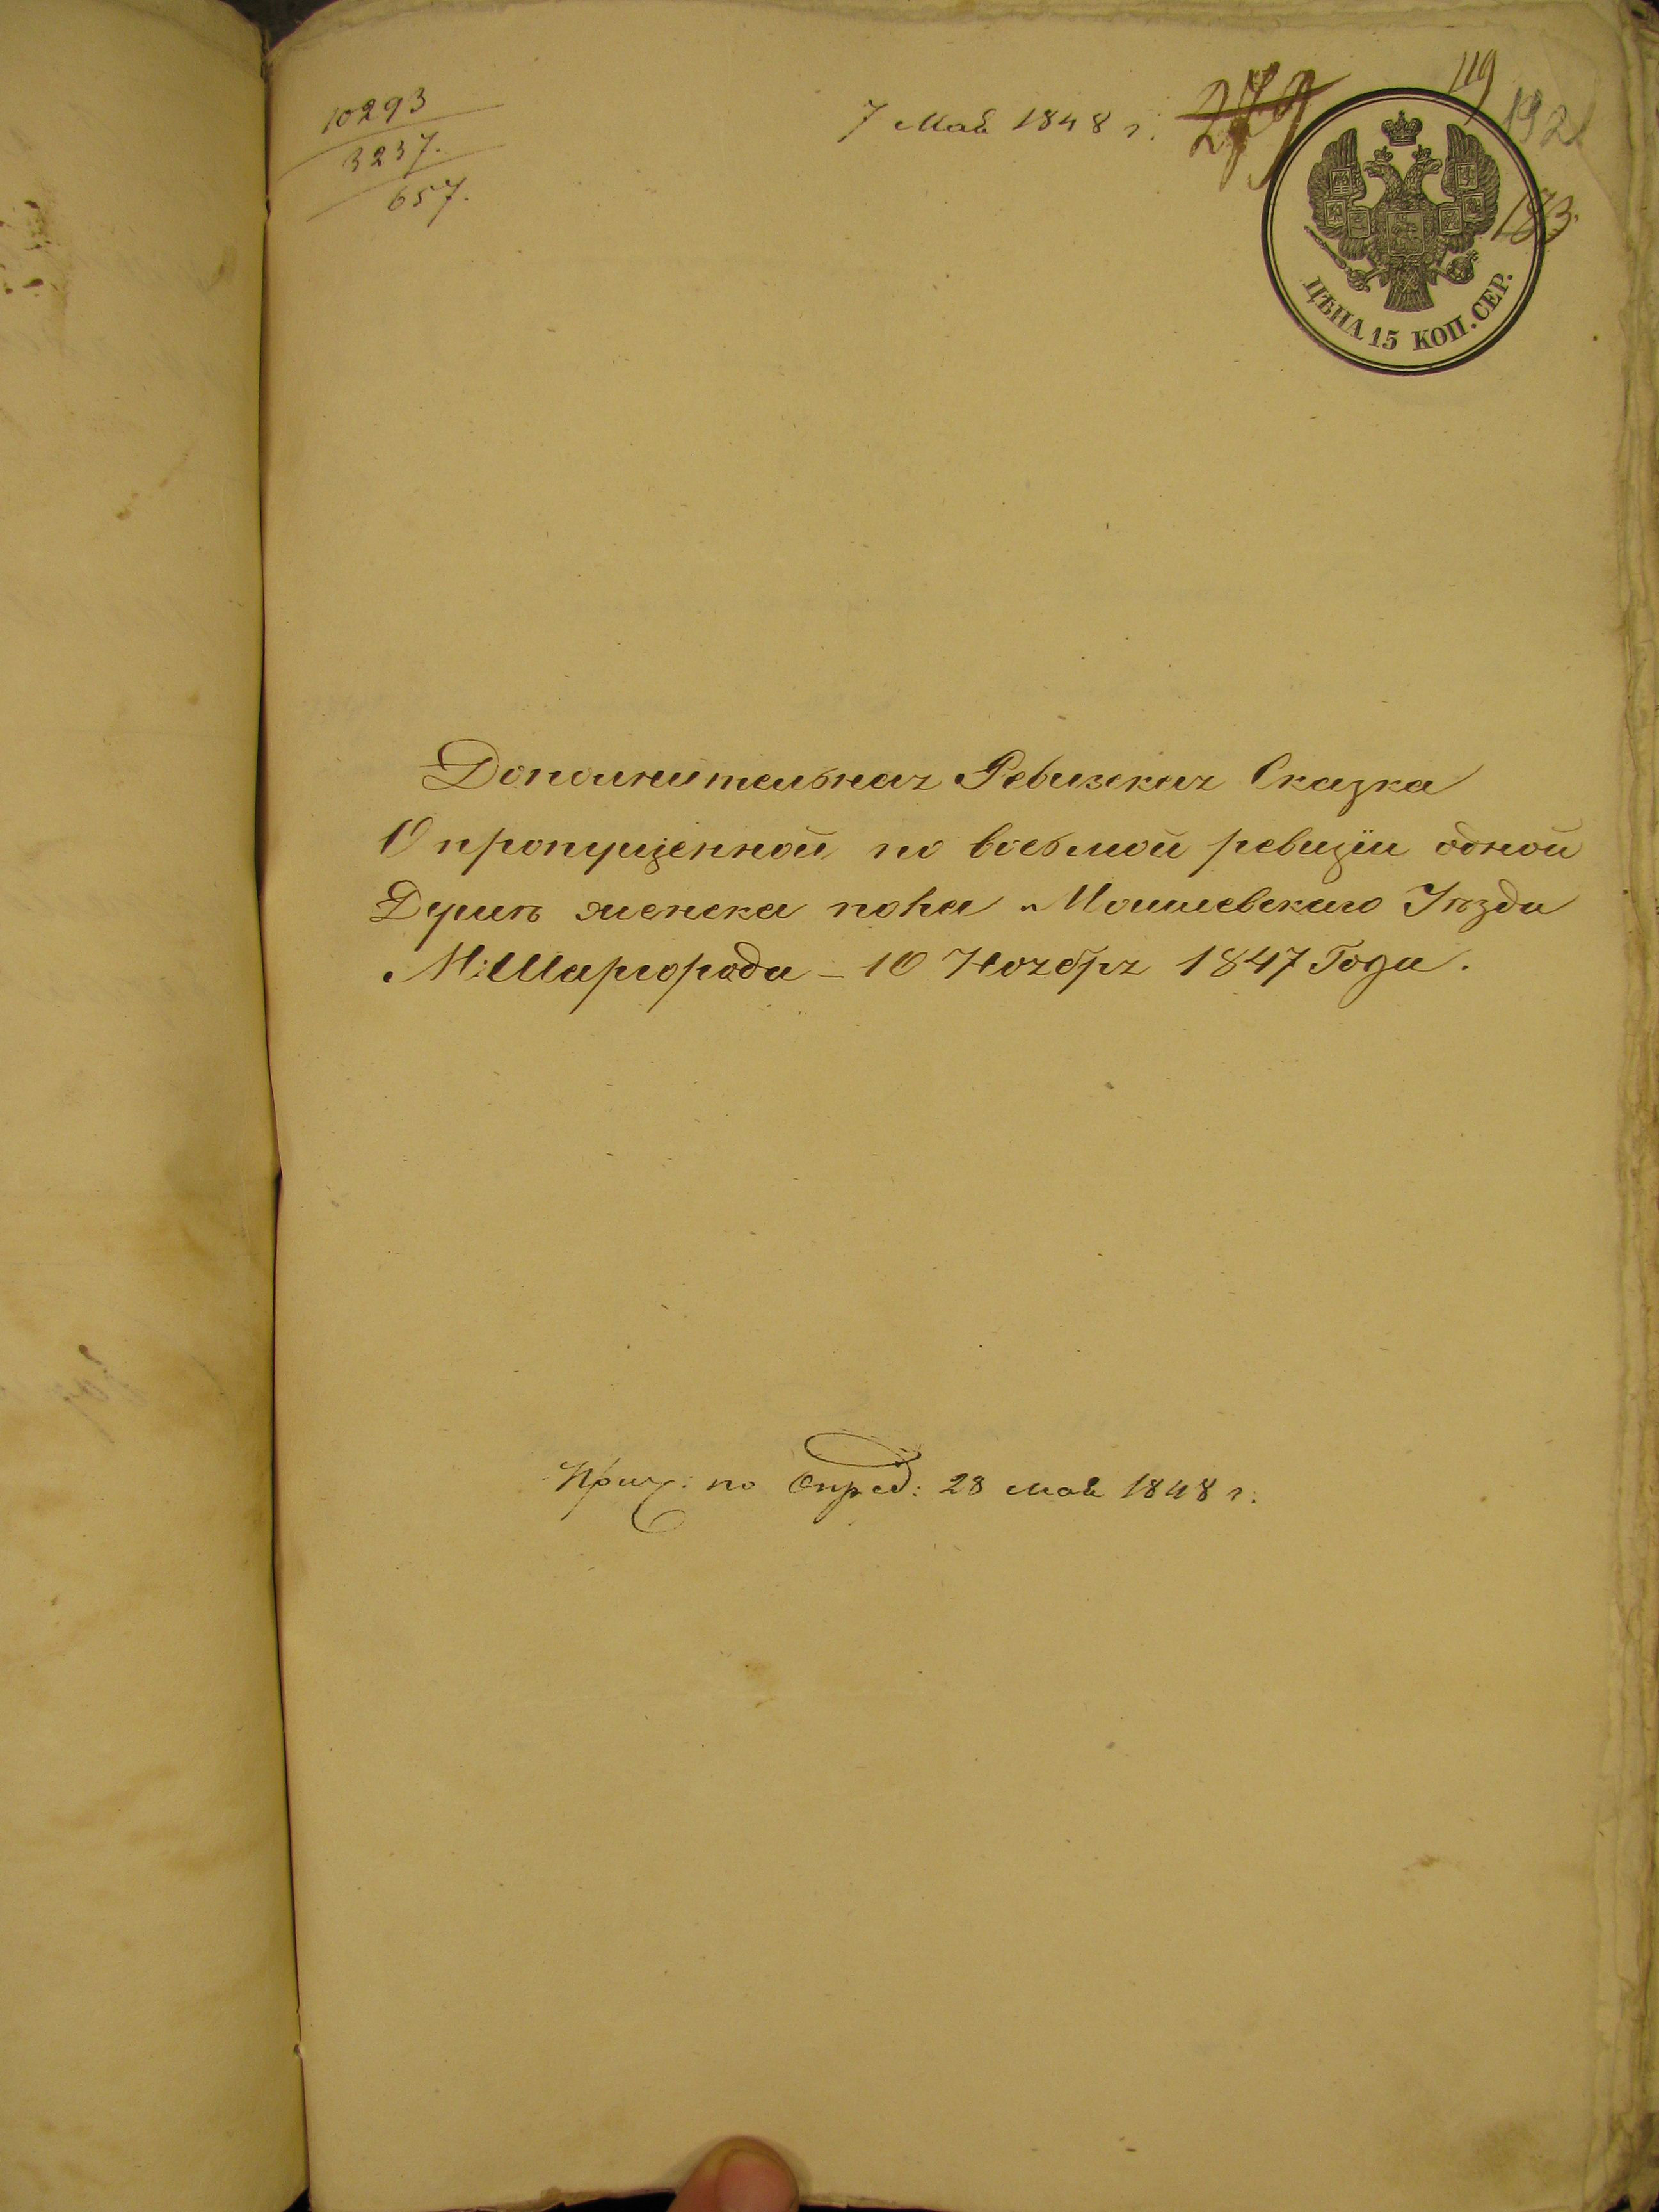 10293
3237.
657.
7 Мая 1848 г.
279
119
192
ЦѢНА 15 КОП. СЕР.
Дополнительная Ревизская Сказка
О пропущенной по восьмой ревизіи одной
Душѣ женска пола Могилевскаго Уѣзда
М: Шаргорода – 10 Ноября 1847 Года.
по Опред: 28 Мая 1848 г.